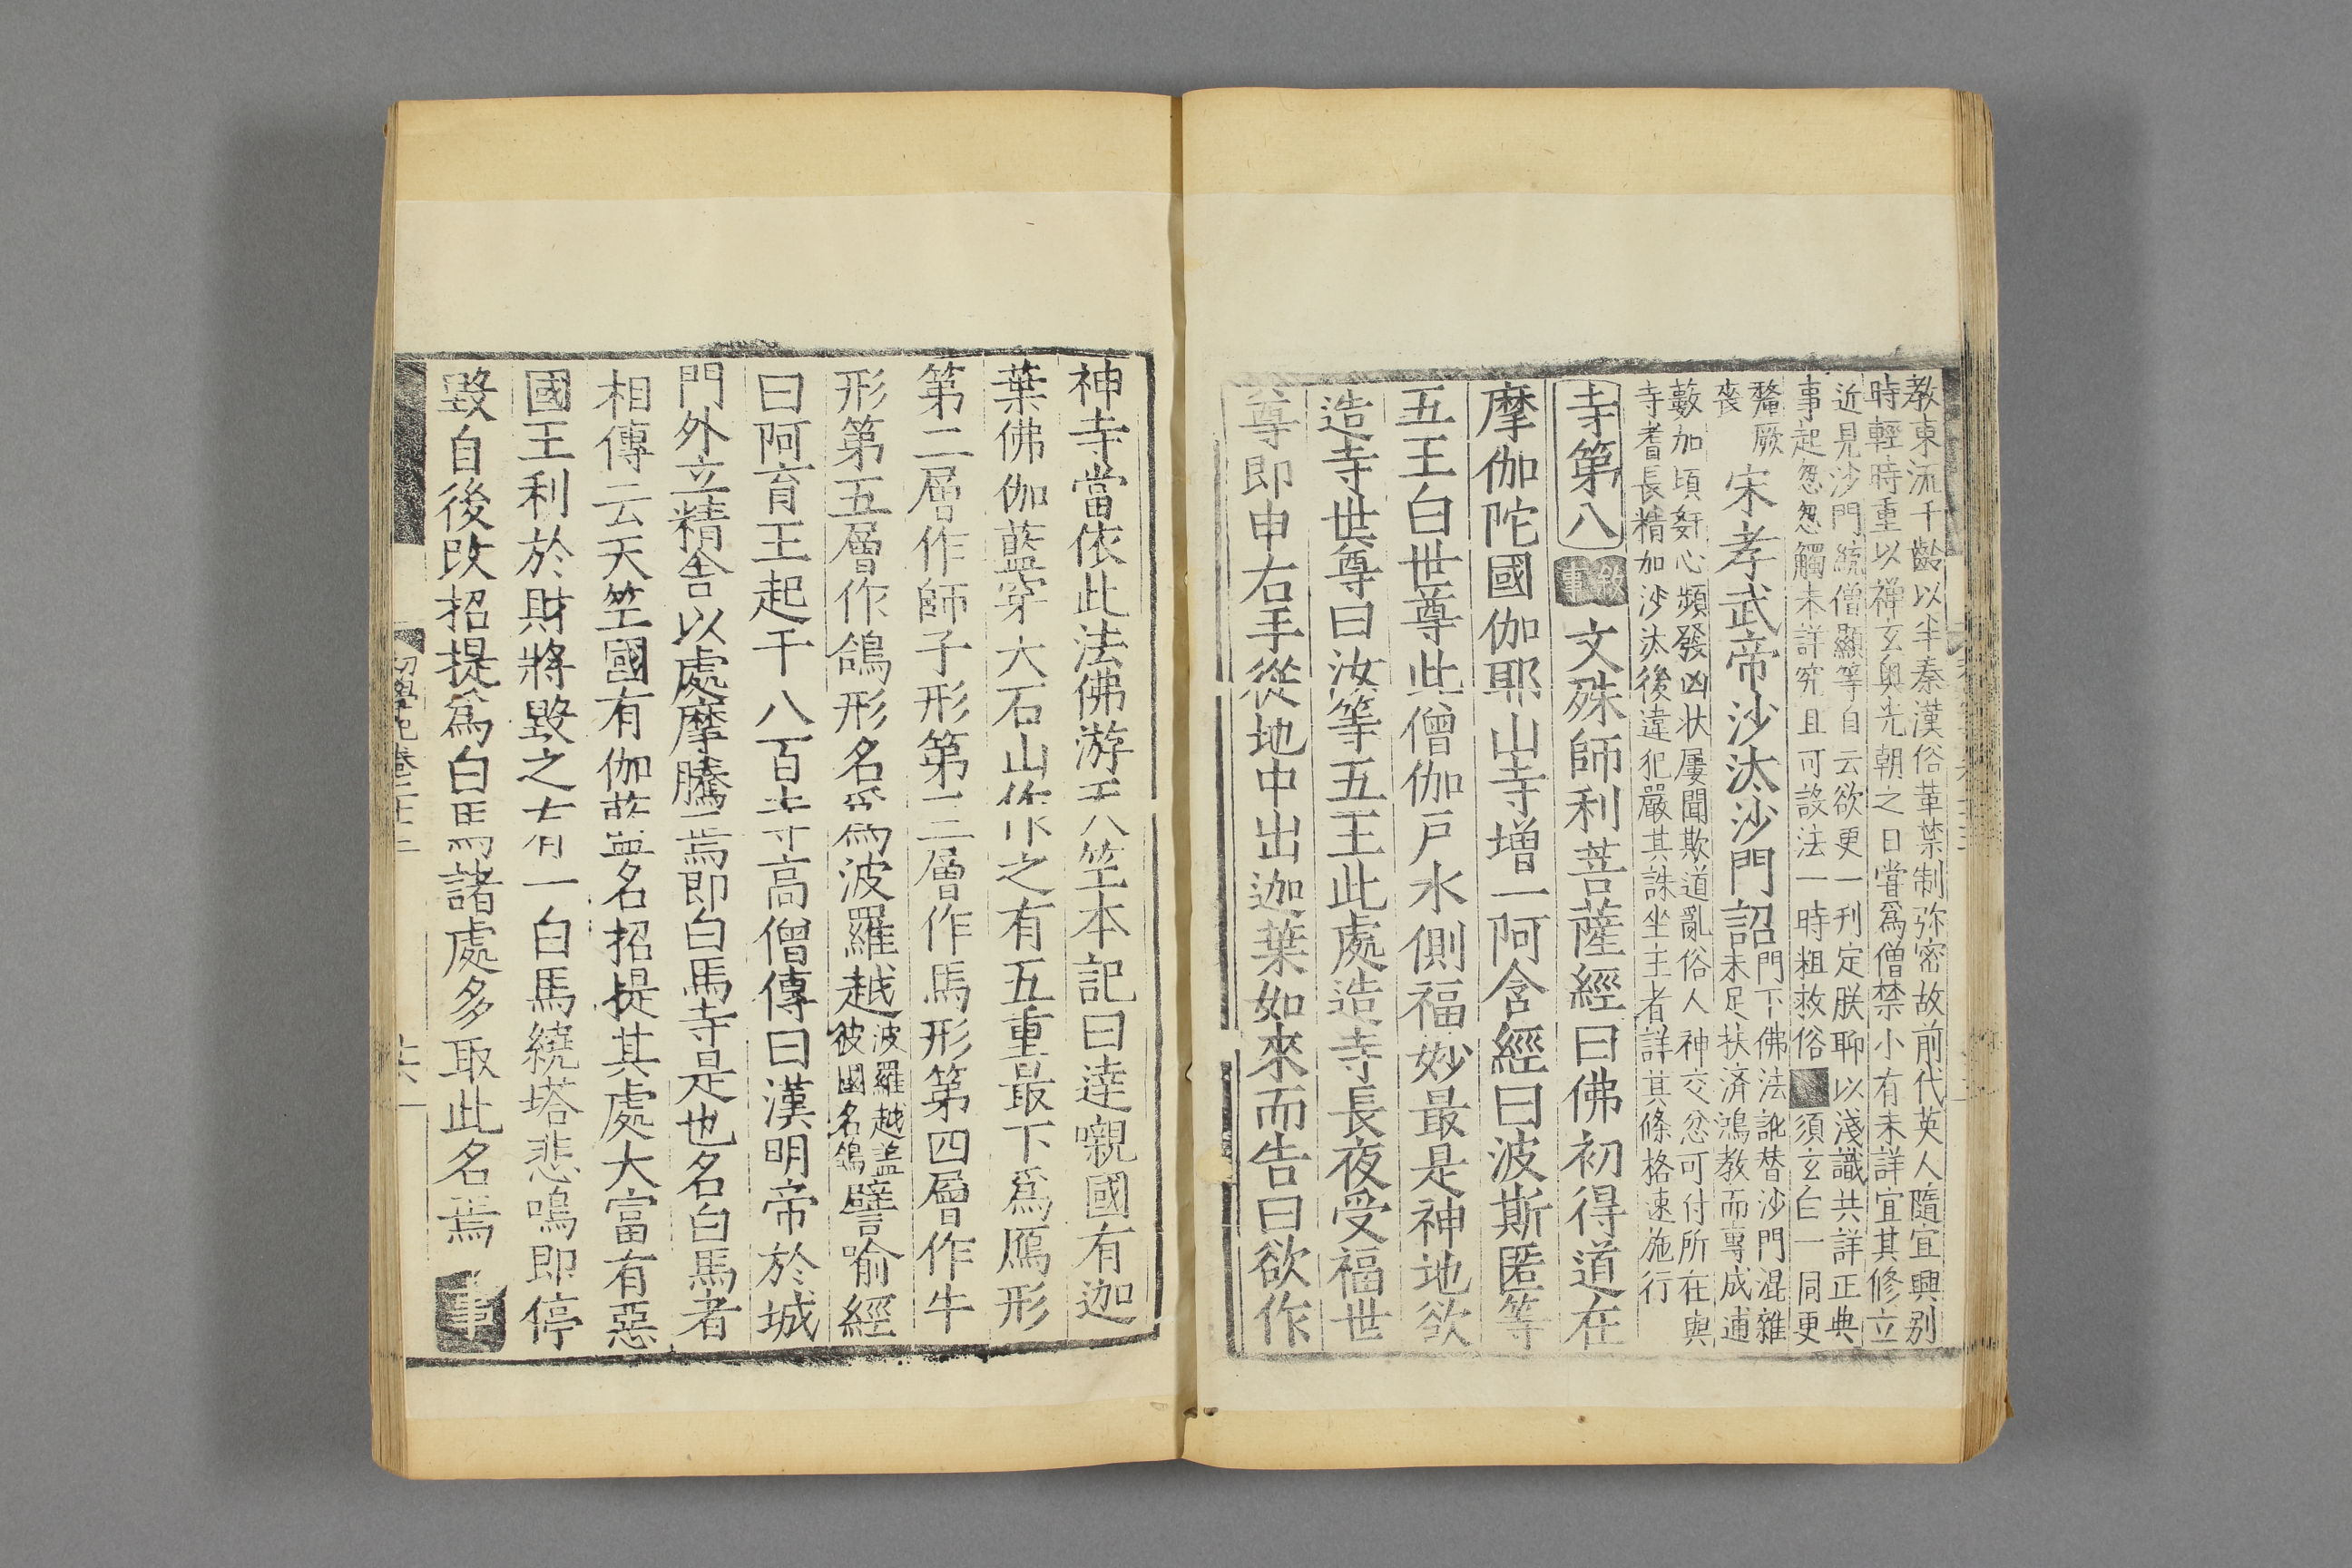 教東流千齡以半秦漢俗革禁制弥密故前代英人隨宜興別
時輕時重以禪玄奥先朝之日嘗爲僧禁小有未詳宜其修立
近見沙門統僧顯等自云欲更一刊定朕聊以淺識共詳正典
事起怱怱觸未詳究且可設法一時粗救俗須玄白一同更
釐厥
衷
宋孝武帝沙汰沙門詔
門下佛法訛替沙門混雜
未足扶済鴻教而專成逋
藪加頃姧心頻發凶状屢聞敗道亂俗人神交忿可付所在與
寺耆長精加沙汰後違犯嚴其誅坐主者詳其條格速施行
寺第八 敘事 文殊師利菩薩經曰佛初得道在
摩伽陀國伽耶山寺增一阿含經曰波斯匿等
五王白世尊此僧伽尸水側福妙最是神地欲
造寺世尊曰汝等五王此處造寺長夜受福世
尊即申右手從地中出迦葉如來而告曰欲作
神寺當依此法佛游天竺本記曰達嚫國有迦
葉佛伽藍穿大石山作之有五重最下爲鴈形
第二層作師子形第三層作馬形第四層作牛
形第五層作鴿形名爲波羅越
波羅越盖
彼國名鴿
譬喻經
曰阿育王起千八百寺高僧傳曰漢明帝於城
門外立精舎以處摩騰焉即白馬寺是也名白馬者
相傳云天竺國有伽藍名招提其處大富有惡
國王利於財將毀之有一白馬繞塔悲鳴即停
毀自後改招提爲白馬諸處多取此名焉 事
初學記卷二十三